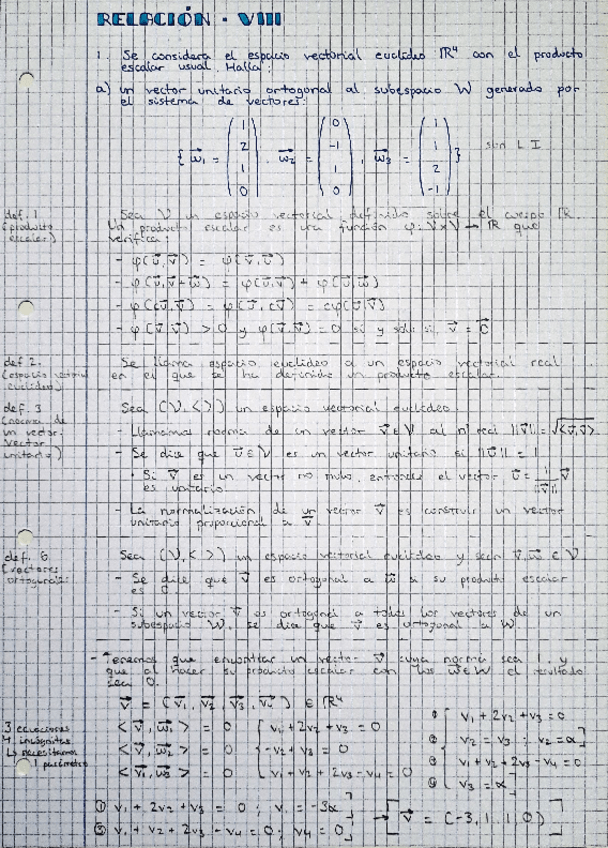 RELACIÓN · VIII
1. Se considera el espacio vectorial euclídeo ℝ⁴ con el producto
escalar usual. Halla:
a) un vector unitario ortogonal al subespacio W generado por
el sistema de vectores:
{ w₁ = (1 2 1 0), w₂ = (0 -1 1 0), w₃ = (1 1 2 -1) } son L I
def. 1 (producto escalar)
Sea V un espacio vectorial definido sobre el cuerpo ℝ.
Un producto escalar es una función φ: V×V → ℝ que
verifica:
- φ(u⃗,v⃗) = φ(v⃗,u⃗)
- φ(u⃗,v⃗+w⃗) = φ(u⃗,v⃗) + φ(u⃗,w⃗)
- φ(cu⃗,v⃗) = φ(u⃗,cv⃗) = cφ(u⃗,v⃗)
- φ(v⃗,v⃗) > 0 y φ(v⃗,v⃗) = 0 si y sólo si v⃗ = 0⃗
def. 2 (espacio vectorial euclídeo)
Se llama espacio euclídeo a un espacio vectorial real
en el que se ha definido un producto escalar.
def. 3 (norma de un vector. Vector unitario)
Sea (V,< >) un espacio vectorial euclídeo.
- Llamamos norma de un vector v⃗∈V al nº real ||v⃗|| = √<v⃗,v⃗>
- Se dice que u⃗∈V es un vector unitario si ||u⃗|| = 1
· Si v⃗ es un vector no nulo, entonces el vector u⃗ = 1/||v⃗|| v⃗
es unitario.
- La normalización de un vector v⃗ es construir un vector
unitario proporcional a v⃗.
def. 6 (vectores ortogonales)
Sea (V,< >) un espacio vectorial euclídeo y sean v⃗,w⃗ ∈ V
- Se dice que v⃗ es ortogonal a w⃗ si su producto escalar
es 0
- Si un vector v⃗ es ortogonal a todos los vectores de un
subespacio W, se dice que v⃗ es ortogonal a W.
- Tenemos que encontrar un vector v⃗ cuya norma sea 1 y
que al hacer su producto escalar con los w⃗∈W el resultado
sea 0.
v⃗ = (v₁, v₂, v₃, v₄) ∈ ℝ⁴
3 ecuaciones
4 incógnitas
↳ necesitamos
1 parámetro
<v⃗,w₁> = 0 { v₁+2v₂+v₃ = 0 ① { v₁+2v₂+v₃ = 0
<v⃗,w₂> = 0 { -v₂+v₃ = 0 ② { v₂ = v₃ ; v₂ = α
<v⃗,w₃> = 0 { v₁+v₂+2v₃-v₄ = 0 ③ { v₁+v₂+2v₃-v₄ = 0
④ { v₃ = α
① v₁+2v₂+v₃ = 0 ; v₁ = -3α
③ v₁+v₂+2v₃-v₄ = 0 ; v₄ = 0 → [v⃗ = (-3, 1, 1, 0)]